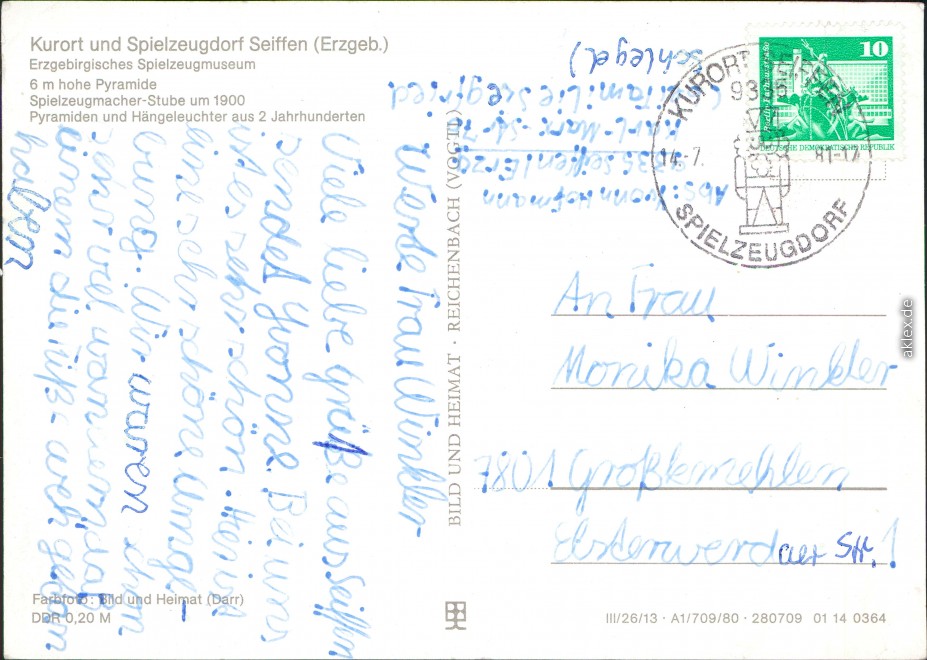 Kurort und Spielzeugdorf Seiffen (Erzgeb.)
Erzgebirgisches Spielzeugmuseum
6 m hohe Pyramide
Spielzeugmacher-Stube um 1900
Pyramiden und Hängeleuchter aus 2 Jahrhunderten
Werte Frau Winkler
Viele liebe Grüße aus Seiffen
sendet Yvonne. Bei uns
ist es sehr schön. Hier ist
eine sehr schöne Umge-
bung. Wir waren schon
sehr viel wandern, daß
haben
Abs.: Yvonn Hofmann
9335 Seiffen/Erzg
Karl-Marx-Str 70
(b. Familie Siegfried
Schlegel)
BILD UND HEIMAT · REICHENBACH (VOGTL)
KURORT SEIFFEN
9335
14.-7. 81-17
SPIELZEUGDORF
10
DEUTSCHE DEMOKRATISCHE REPUBLIK
An Frau
Monika Winkler
7801 Großkmehlen
Elsterwerdaer Str. 1
Farbfoto: Bild und Heimat (Darr)
DDR 0,20 M
III/26/13 · A1/709/80 · 280709 01 14 0364
aklex.de